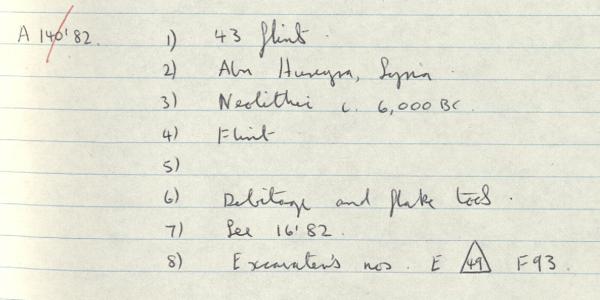 A 140'82. 1) 43 flint.
2) Abu Hureyra, Syria
3) Neolithic c. 6,000 BC.
4) Flint
5)
6) Debitage and flake tools.
7) See 16'82.
8) Excavator's nos. E 49 F93.